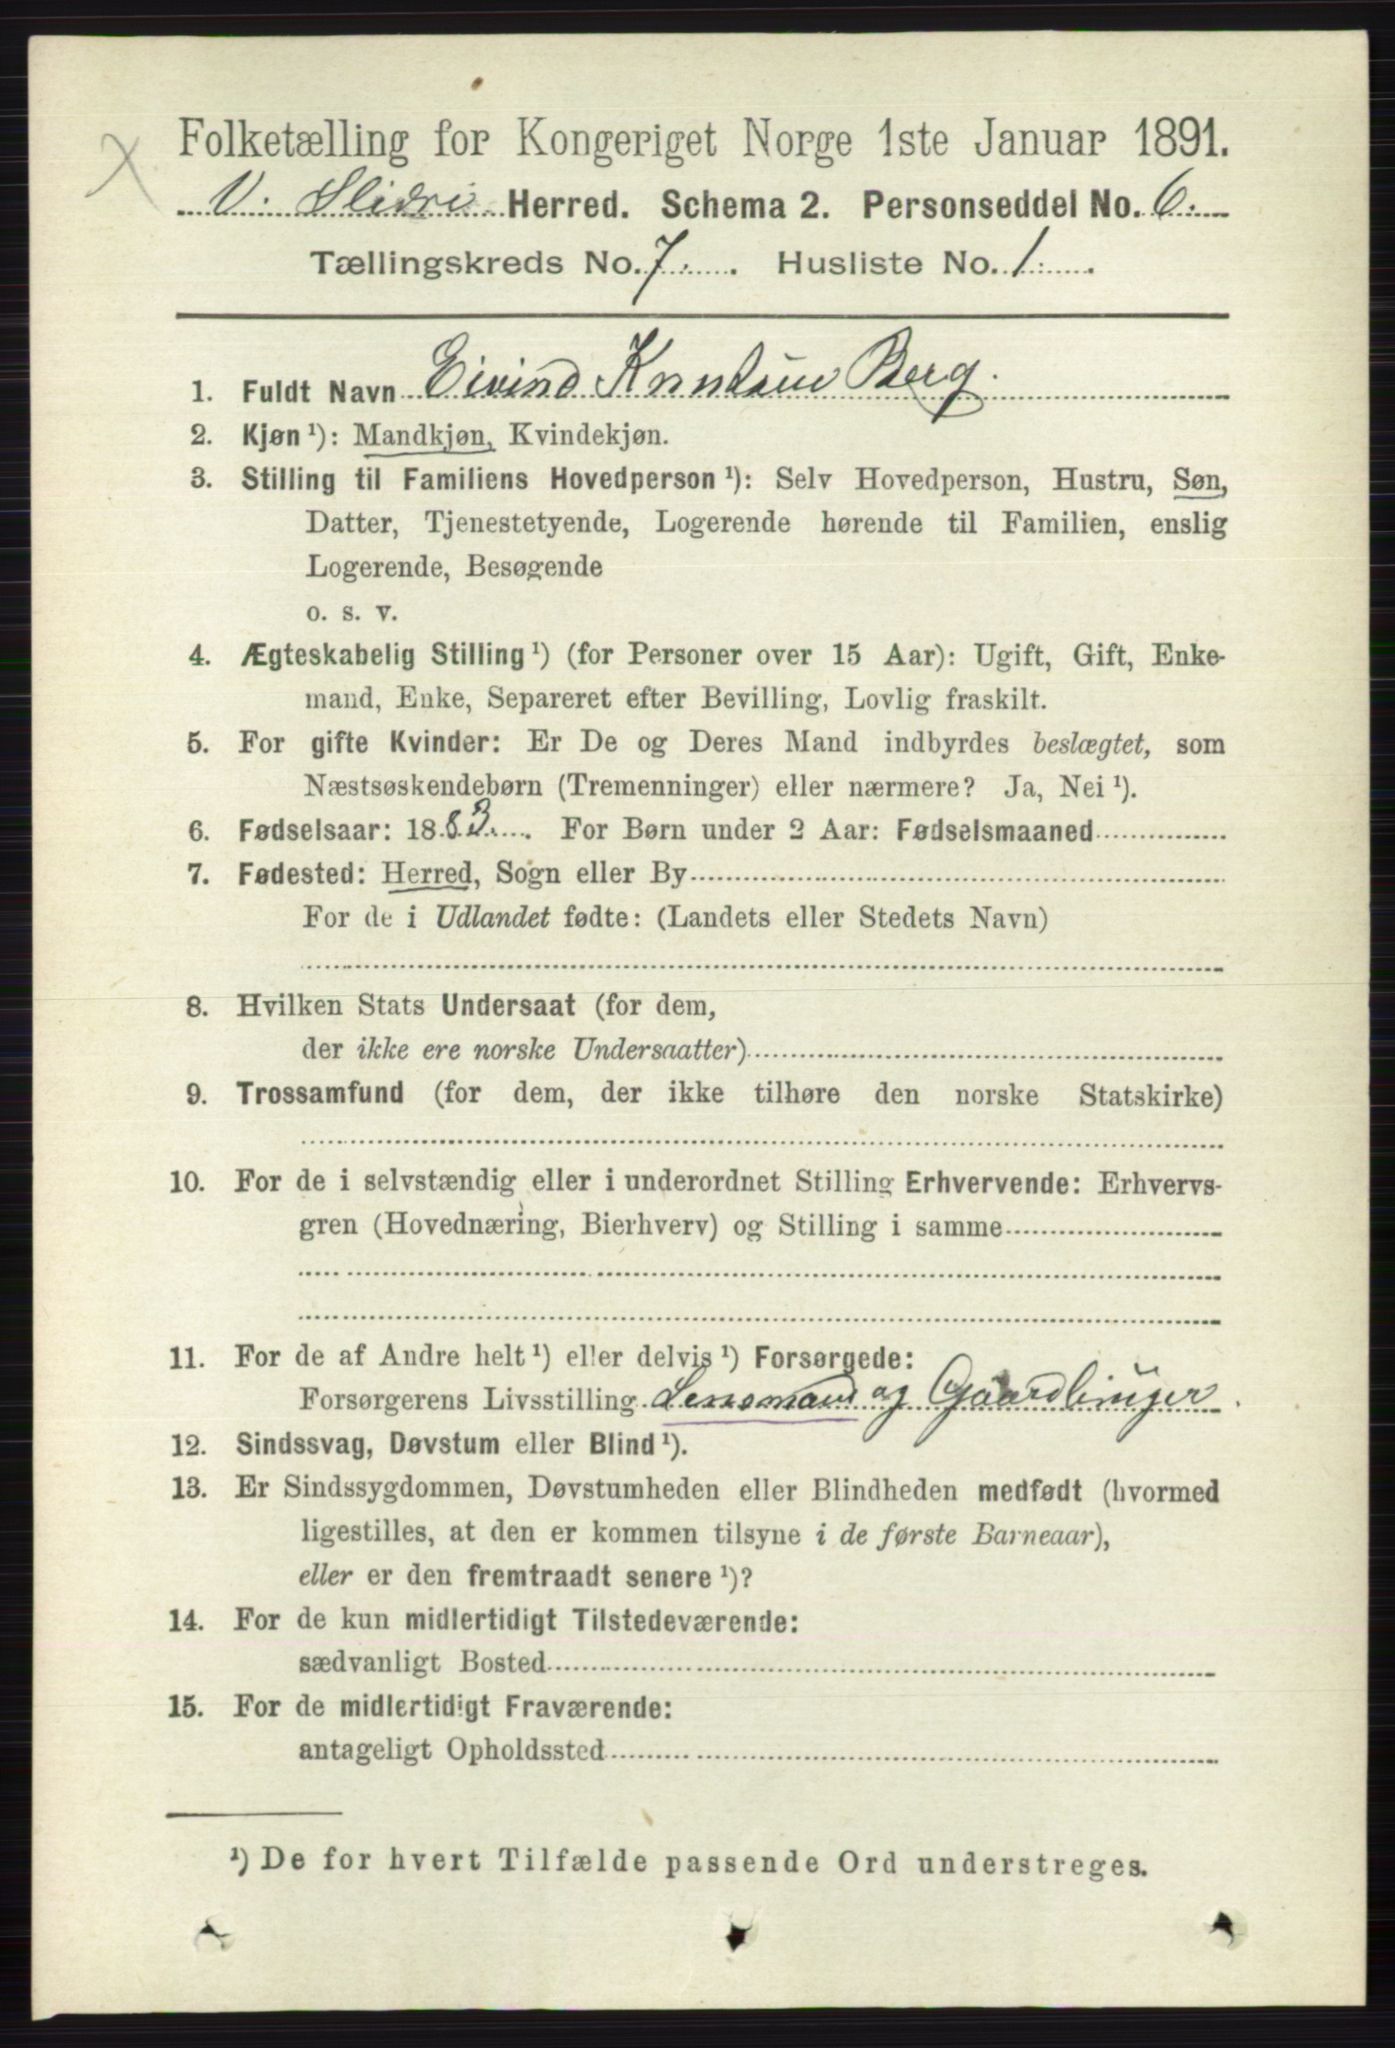 Folketælling for Kongeriget Norge 1ste Januar 1891.
V. Slidre Herred. Schema 2. Personseddel No. 6.
Tællingskreds No. 7. Husliste No. 1.
1. Fuldt Navn Eivind Knutsen Berg.
2. Kjøn ¹): Mandkjøn, Kvindekjøn.
3. Stilling til Familiens Hovedperson ¹): Selv Hovedperson, Hustru, Søn,
Datter, Tjenestetyende, Logerende hørende til Familien, enslig
Logerende, Besøgende
o. s. v.
4. Ægteskabelig Stilling ¹) (for Personer over 15 Aar): Ugift, Gift, Enke-
mand, Enke, Separeret efter Bevilling, Lovlig fraskilt.
5. For gifte Kvinder: Er De og Deres Mand indbyrdes beslægtet, som
Næstsøskendebørn (Tremenninger) eller nærmere? Ja, Nei ¹).
6. Fødselsaar: 1883. For Børn under 2 Aar: Fødselsmaaned
7. Fødested: Herred, Sogn eller By
For de i Udlandet fødte: (Landets eller Stedets Navn)
8. Hvilken Stats Undersaat (for dem,
der ikke ere norske Undersaatter)
9. Trossamfund (for dem, der ikke tilhøre den norske Statskirke)
10. For de i selvstændig eller i underordnet Stilling Erhvervende: Erhvervs-
gren (Hovednæring, Bierhverv) og Stilling i samme
11. For de af Andre helt ¹) eller delvis ¹) Forsørgede:
Forsørgerens Livsstilling Lensmand og Gaardbruger.
12. Sindssvag, Døvstum eller Blind ¹).
13. Er Sindssygdommen, Døvstumheden eller Blindheden medfødt (hvormed
ligestilles, at den er kommen tilsyne i de første Barneaar),
eller er den fremtraadt senere ¹)?
14. For de kun midlertidigt Tilstedeværende:
sædvanligt Bosted
15. For de midlertidigt Fraværende:
antageligt Opholdssted
¹) De for hvert Tilfælde passende Ord understreges.